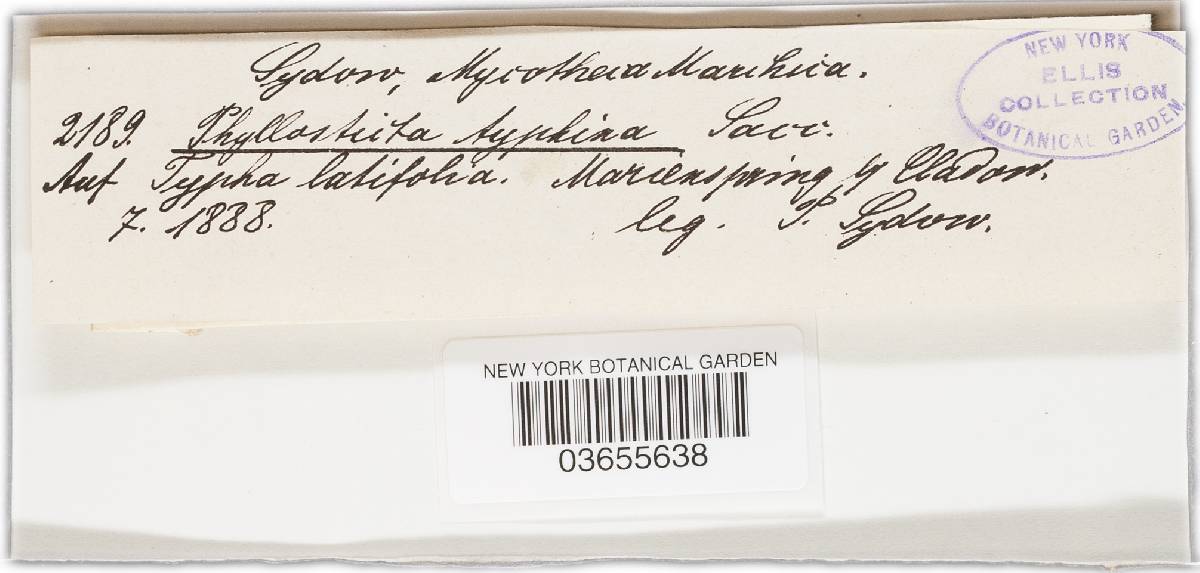 Sydow, Mycotheca Marchica.
2189. Phyllosticta typhina Sacc.
Auf Typha latifolia. Marienspring Cladow.
7. 1888. leg. P. Sydow.
NEW YORK
ELLIS
COLLECTION
BOTANICAL GARDEN
NEW YORK BOTANICAL GARDEN
03655638